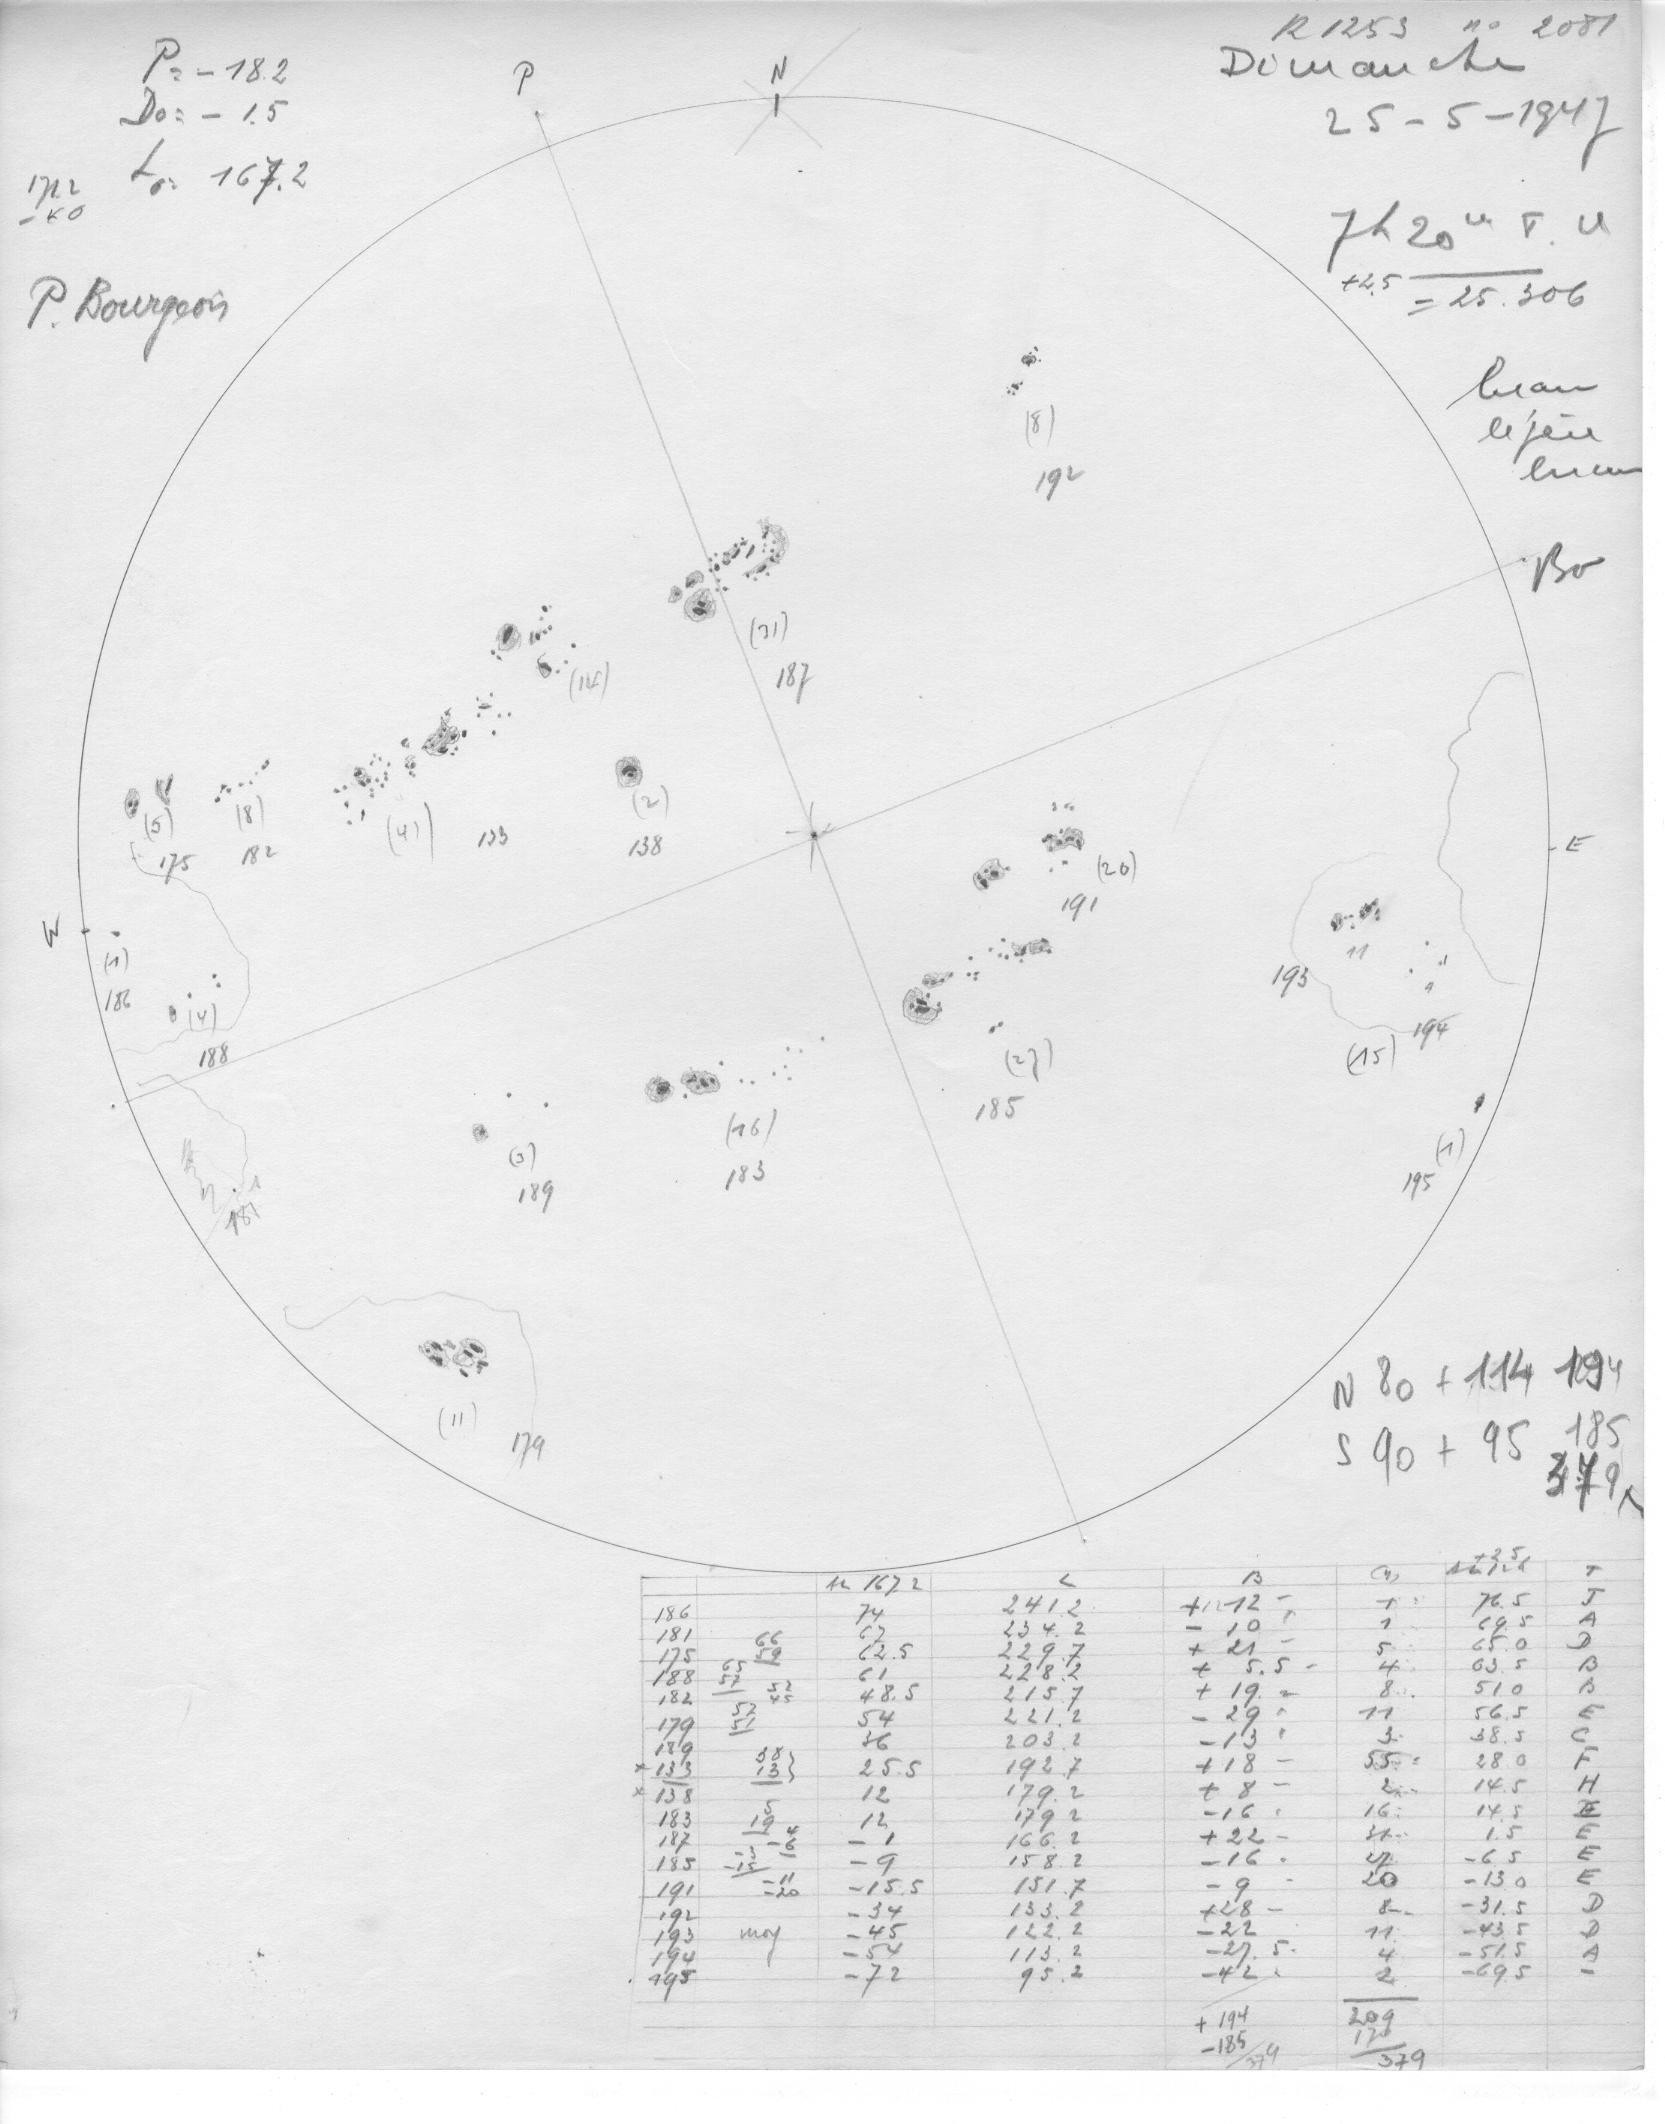 R 1253 no 2081
Dimanche
25-5-1947
7h 20m T.U
+2.5
= 25.306
P = -18.2
Do = -1.5
Lo = 167.2
171.2
-4.0
P. Bourgeois
P
N
beau
légère
brume
Bo
(8)
192
(31)
187
(14)
(2)
138
(4)
133
(8)
182
(5)
175
E
W
(1)
186
(4)
188
(20)
191
11
193
194
(15)
(27)
185
(1)
195
(16)
183
(3)
189
1
181
(11)
179
N 80 + 114 194
S 90 + 95 185
379
167.2 L B T
+2.5
186 74 241.2 +12 1 76.5 J
181 67 234.2 -10 1 69.5 A
175 66 59 62.5 229.7 +21 5 65.0 D
188 65 57 61 228.2 +5.5 4 63.5 B
182 52 45 48.5 215.7 +19 8 51.0 B
179 57 51 54 221.2 -29 11 56.5 E
189 36 203.2 -13 3 38.5 C
x 133 38 13 25.5 192.7 +18 55 28.0 F
x 138 12 179.2 +8 2 14.5 H
183 5 19 12 179.2 -16 16 14.5 E
187 4 -6 -1 166.2 +22 31 1.5 E
185 -3 -15 -9 158.2 -16 27 -6.5 E
191 -11 -20 -15.5 151.7 -9 20 -13.0 E
192 -34 133.2 +28 8 -31.5 D
193 moy -45 122.2 -22 11 -43.5 D
194 -54 113.2 -27.5 4 -51.5 A
195 -72 95.2 -42 2 -69.5 -
+194 209
-185 170
379 379